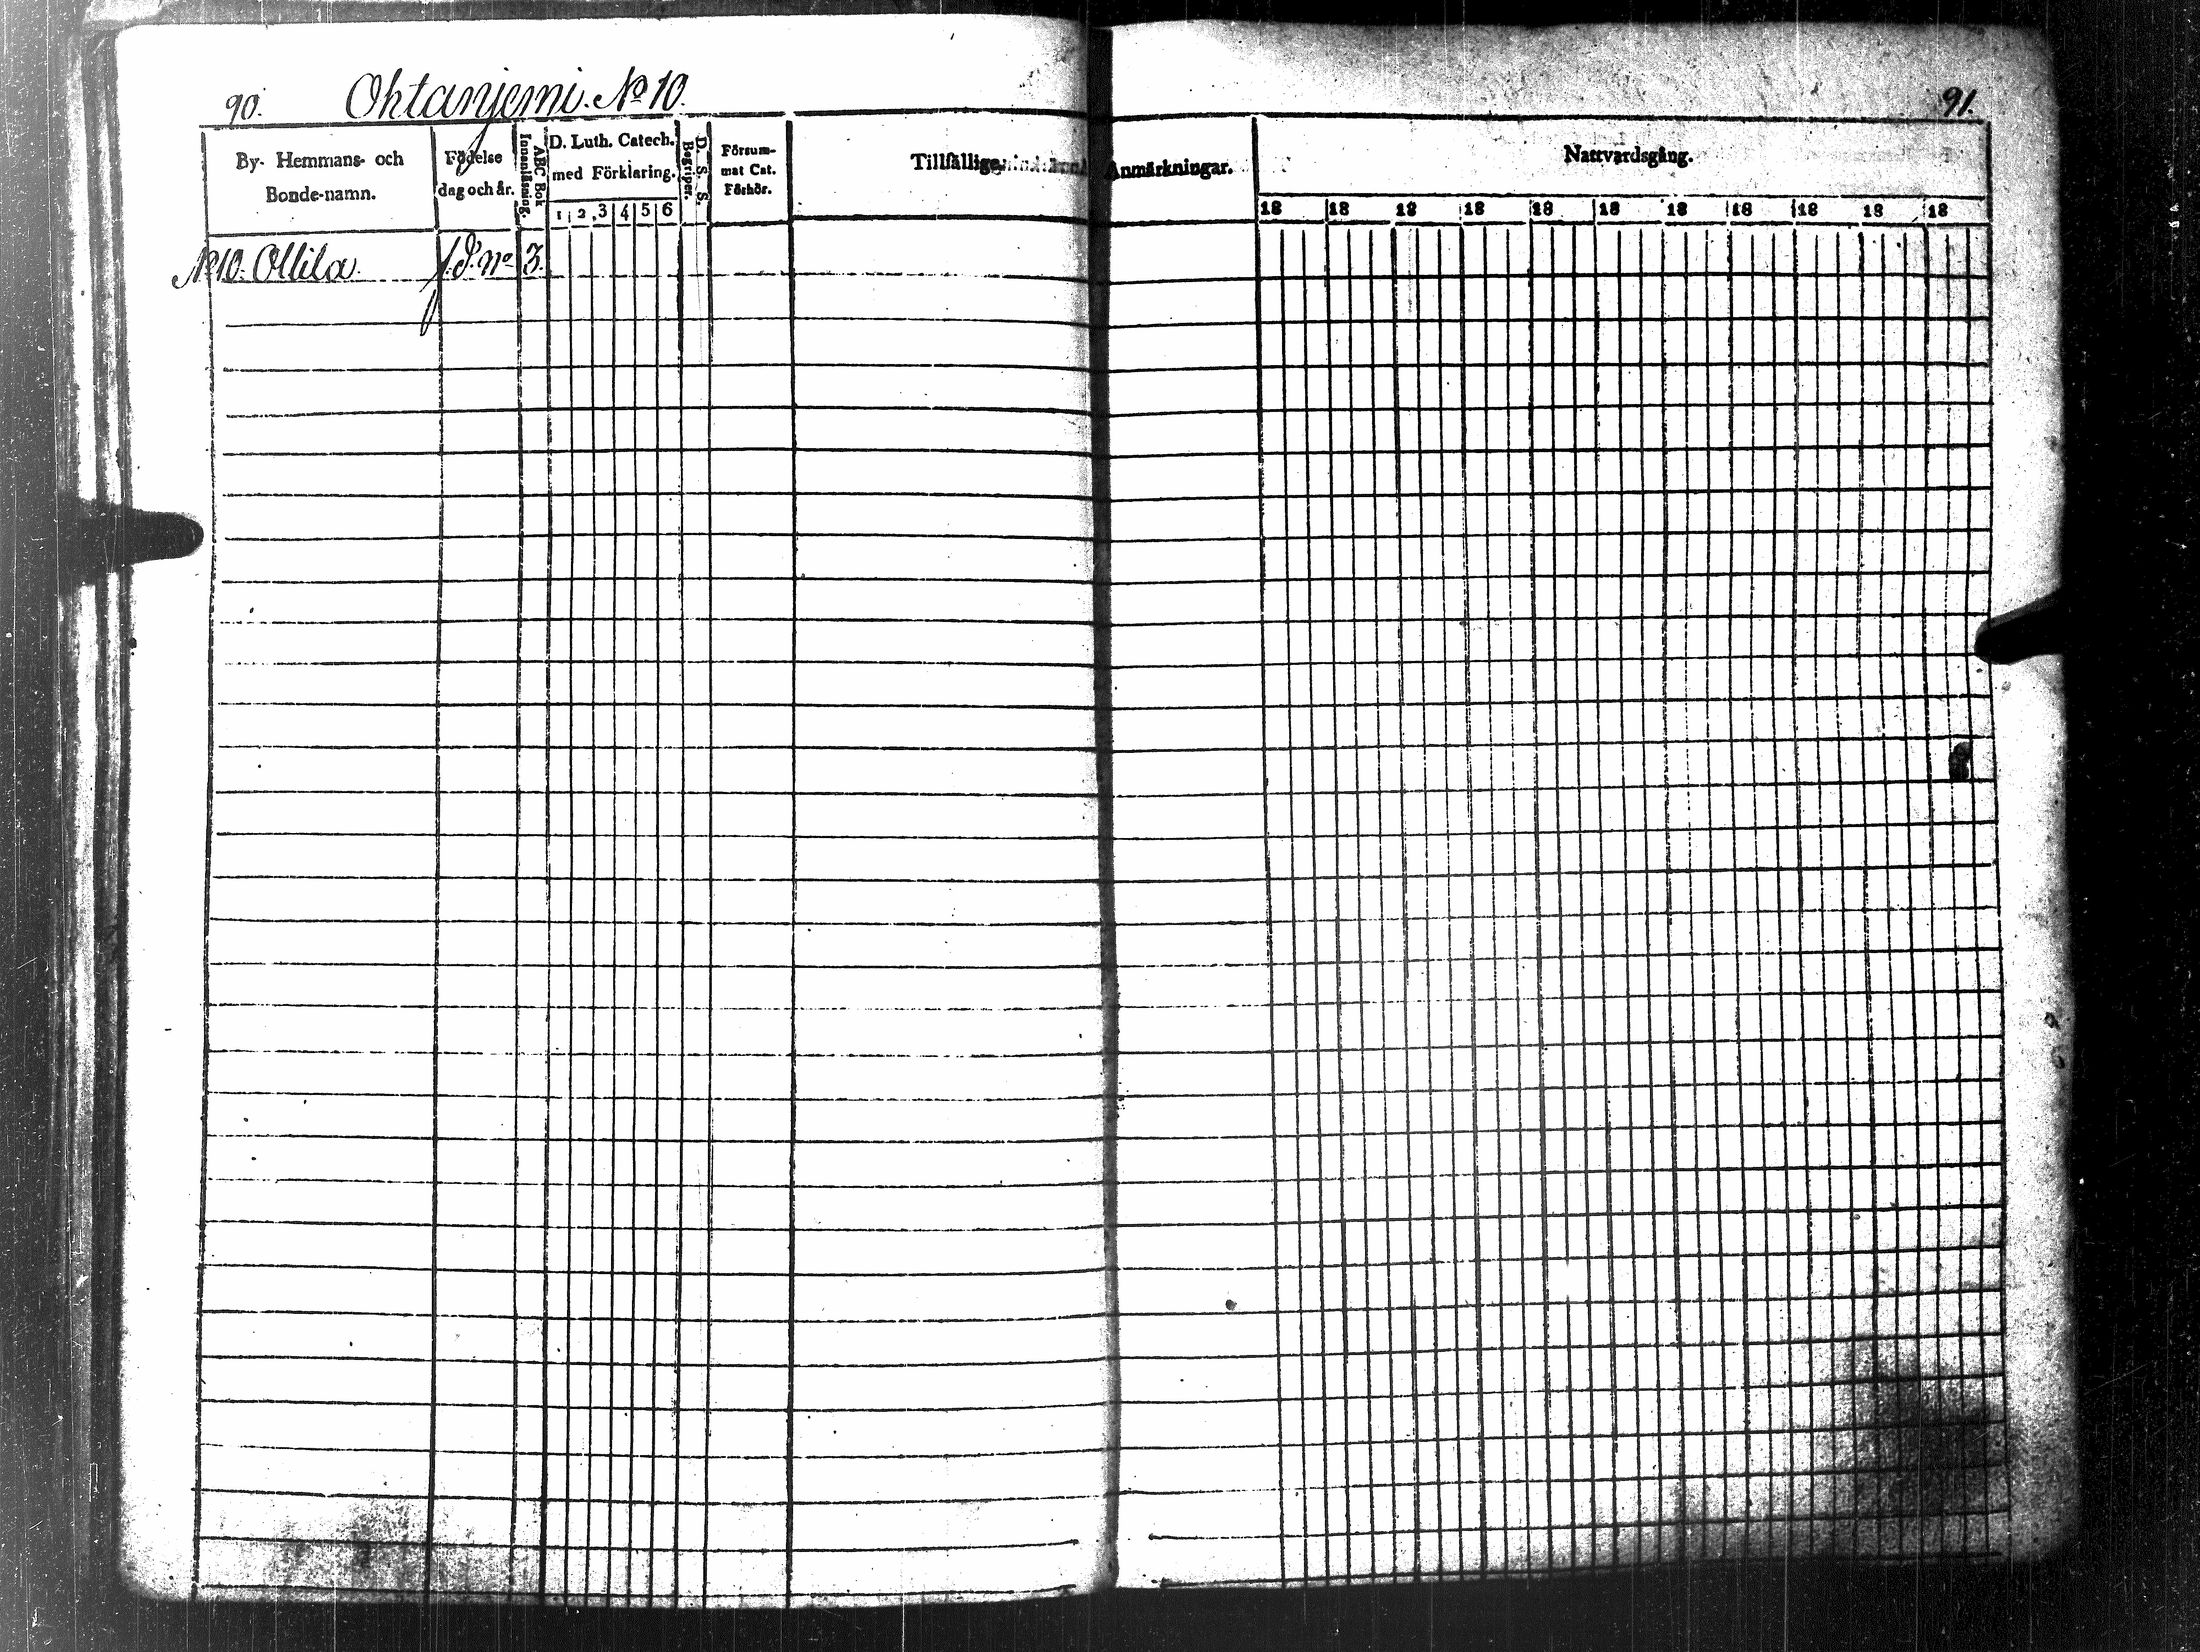 90. Ohtanjemi. No 10.
91.
By- Hemmans- och
Bonde-namn.
Födelse
dag och år.
ABC Bok
Innanläsning.
D. Luth. Catech.
med Förklaring.
1 2 3 4 5 6
D. S. S.
Begriper.
Försum-
mat Cat.
Förhör.
Tillfällige Anmärkningar.
Nattvardsgång.
18 18 18 18 18 18 18 18 18 18 18
No 10. Ollila. 3.